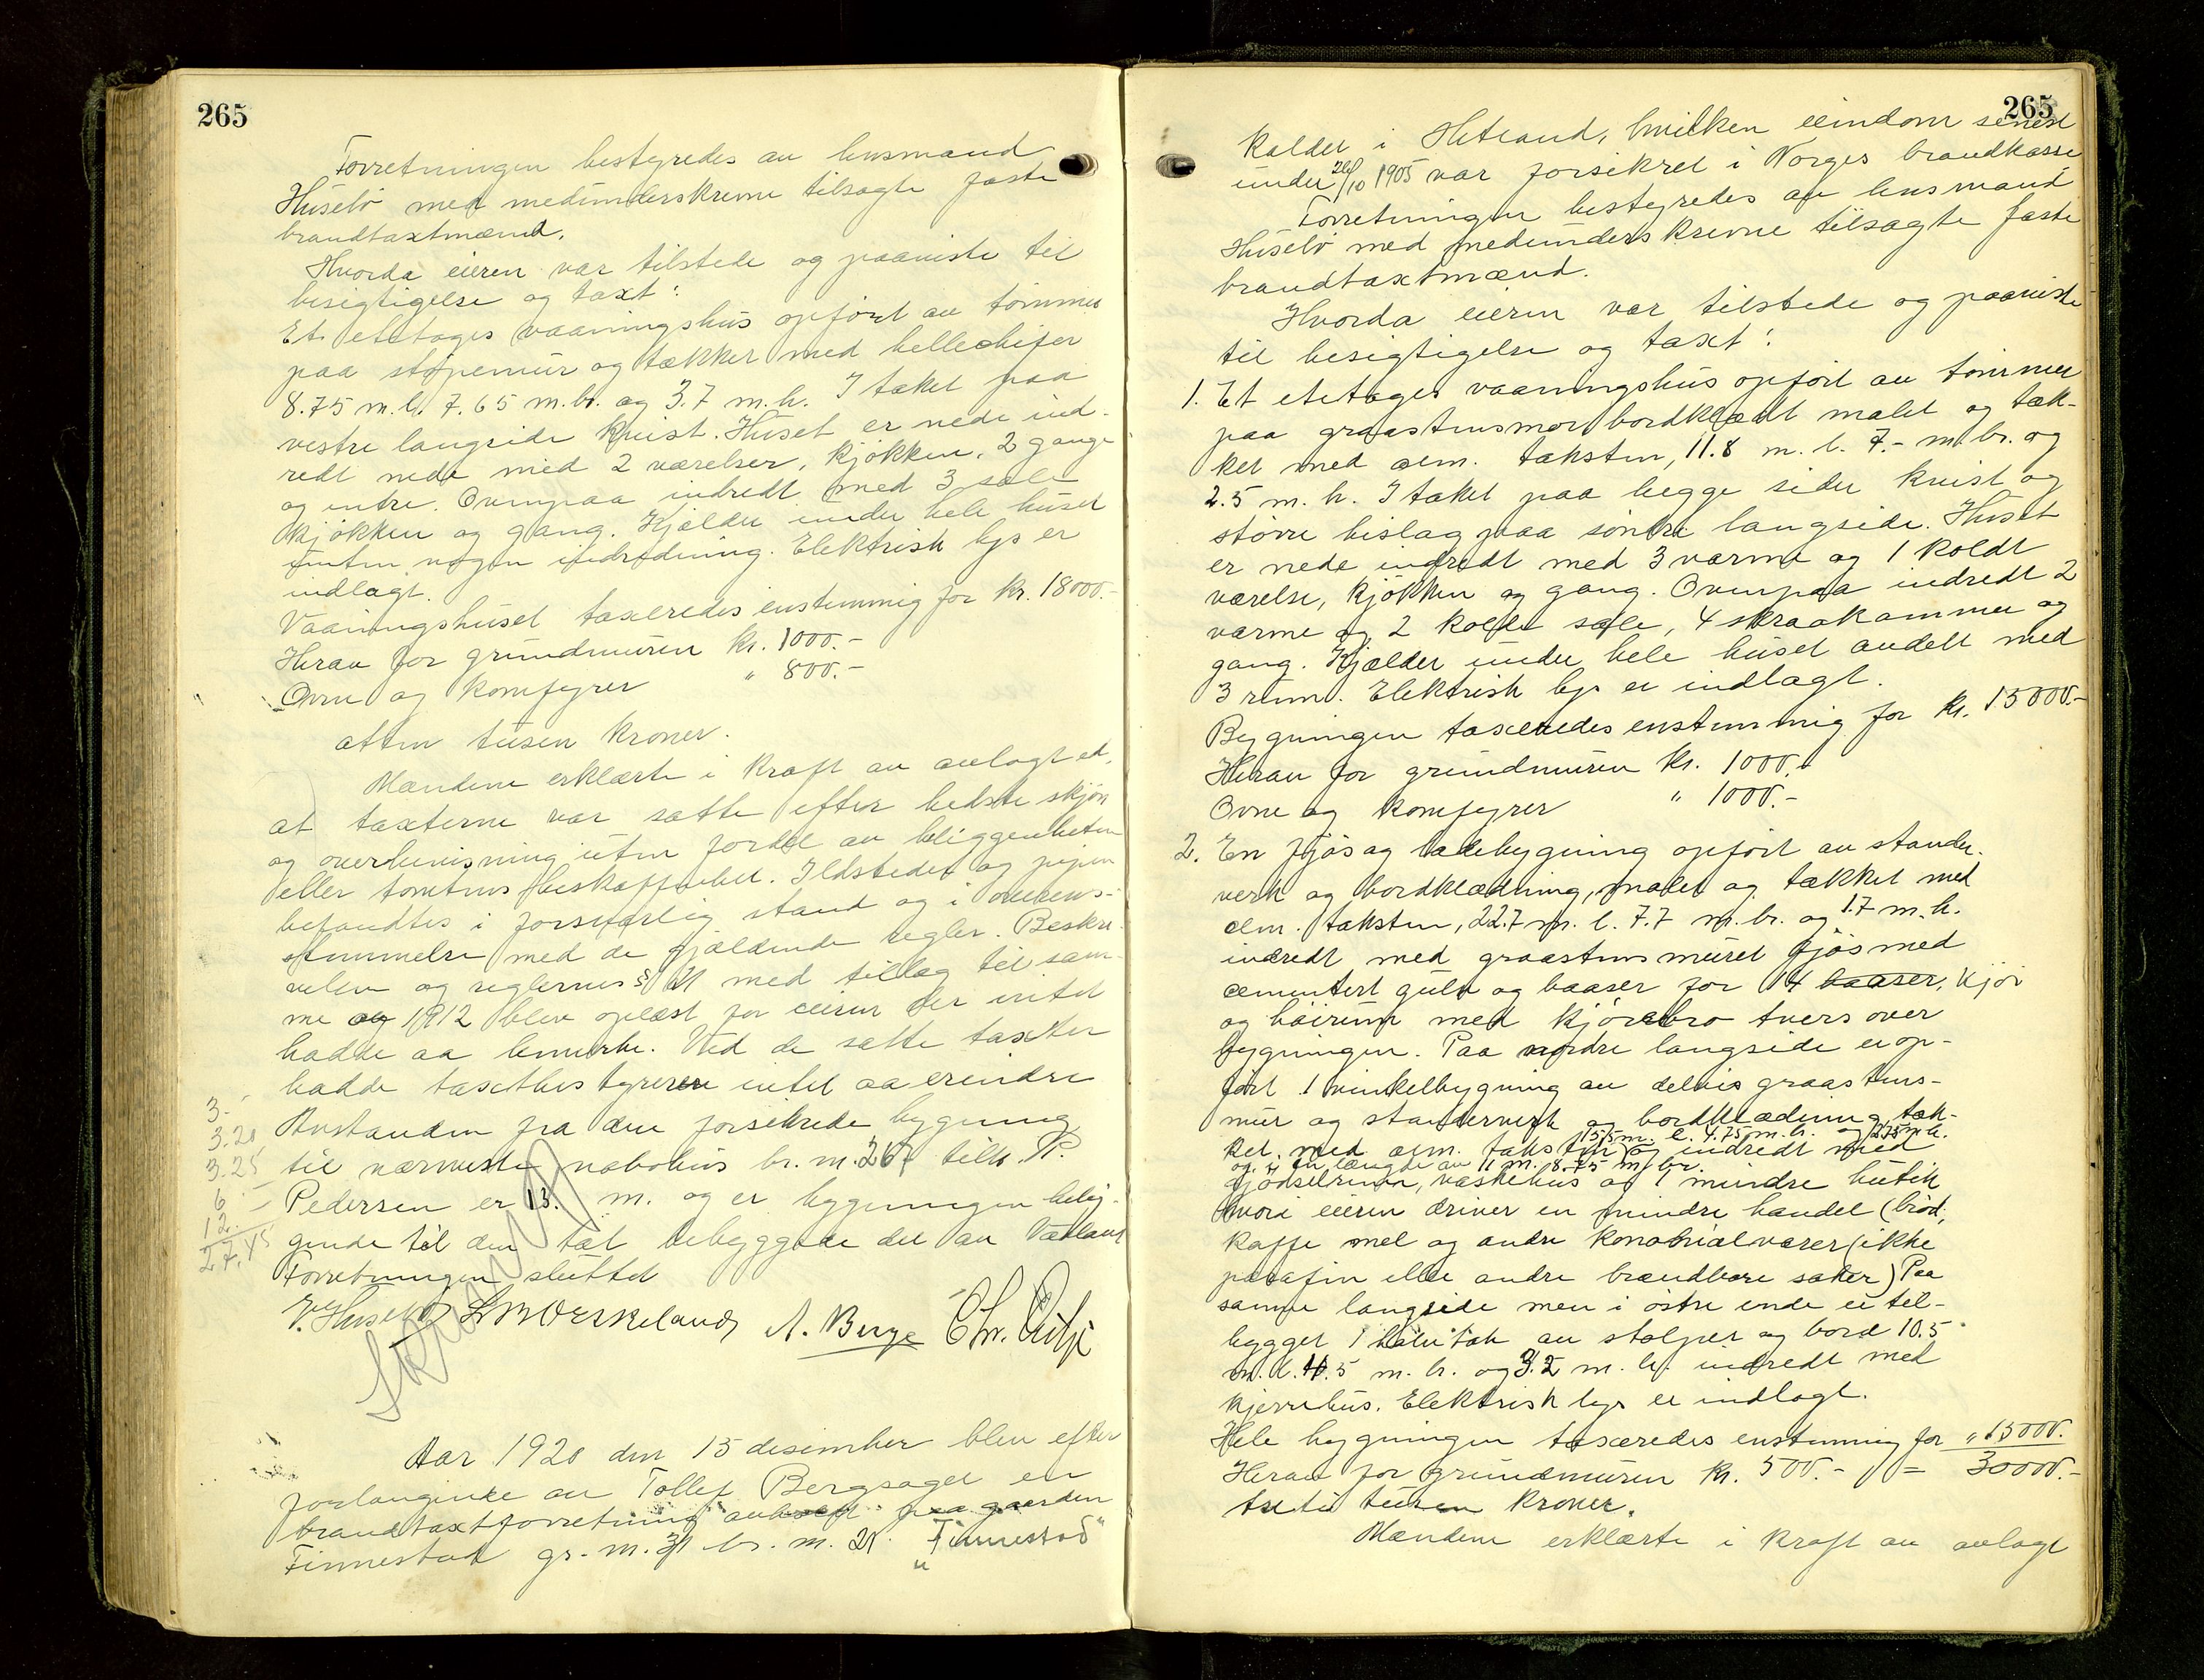 265
Forretningen bestyredes av lensmand
Husebø med medunderskrevne tilsagte faste
brandtaxtmænd.
Hvorda eieren var tilstede og paaviste til
besigtigelse og taxt:
Et etetages vaaningshus opført av tømmer
paa støpemur og tækket med helleskifer
8.75 m. l. 7.65 m. br. og 3.7 m. h. I taket paa
vestre langside kvist. Huset er nede ind-
redt nede med 2 værelser, kjøkken, 2 gange
og entre. Ovenpaa indredt med 3 sale
kjøkken og gang. Kjælder under hele huset
uten nogen indredning. Elektrisk lys er
indlagt.
Vaaningshuset taxeredes enstemmig for kr. 18000.-
Herav for grundmuren kr. 1000.-
Ovne og komfyrer " 800.-
atten tusen kroner.
Mændene erklærte i kraft av avlagt ed,
at taxterne var satte efter bedste skjøn
og overbevisning uten fordel av beliggenheten
eller tomtens beskaffenhet. Ildsteder og piper
befandtes i forsvarlig stand og i overens-
stemmelse med de gjældende regler. Beskri-
velsen og reglernes § 21 med tillæg til sam-
me av 1912 blev oplæst for eieren der intet
hadde aa bemerke. Ved de satte taxter
hadde taxtbestyreren intet aa erindre
Avstanden fra den forsikrede bygning
til nærmeste nabohus br. nr. 267 tilh. P.
Pedersen er 13. m. og er bygningen belig-
gende til den tæt bebyggede del av
Forretningen sluttet
3.-
3.20
3.25
6.-
12.
27.45
V. Husebø A. Berge
Aar 1920 den 15 desember blev efter
forlangende av Tollef Bergsagel en
brandtaxtforretning avholdt paa gaarden
Finnestad gr. nr. 31 br. nr. 21. "Finnestad"
265
kaldet i Hetland, hvilken eiendom senest
under 26/10 1905 var forsikret i Norges brandkasse
Forretningen bestyredes av lensmand
Husebø med medunderskrevne tilsagte faste
brandtaxtmænd.
Hvorda eieren var tilstede og paaviste
til besigtigelse og taxt:
1. Et etetages vaaningshus opført av tømmer
paa graastensmur bordklædt malet og tæk-
ket med alm. taksten, 11.8 m. l. 7.- m. br. og
2.5 m. h. I taket paa begge sider kvist og
større bislag paa søndre langside. Huset
er nede indredt med 3 varme og 1 koldt
værelse, kjøkken og gang. Ovenpaa indredt 2
varme og 2 kolde sale, 4 skraakammer og
gang. Kjælder under hele huset avdelt med
3 rum. Elektrisk lys er indlagt.
Bygningen taxeredes enstemmig for kr. 15000.-
Herav for grundmuren kr. 1000.-
Ovne og komfyrer " 1000.-
2. En fjøs og ladebygning opført av stender-
verk og bordklædning, malet og tækket med
alm. taksten, 22.7 m. l. 7.7 m. br. og 1.7 m. h.
indredt med graastensmuret fjøs med
cementert gulv og baaser for 14 baaser, kjør
og høirum med kjørebro tvers over
bygningen. Paa nordre langside er op-
ført 1 vinkelbygning av delvis graastens-
mur og stenderverk og bordklædning tæk-
ket med alm. taksten 15.5 m. l. 4.75 m. br. og 2.75 m. h.
og indredt med
og i en længde av 11 m. 8.75 m. br.
gjødselrum, vaskehus og 1 mindre butik
hvori eieren driver en mindre handel (brød,
kaffe mel og andre kolonialvarer (ikke
parafin eller andre brændbare saker) Paa
samme langside men i østre ende er til-
bygget 1 halvtak av stolper og bord 10.5
m. l. 4.5 m. br. og 3.2 m. h. indredt med
kjerrehus. Elektrisk lys er indlagt.
Hele bygningen taxeredes enstemmig for " 15000.-
Herav for grundmuren kr. 500.- = 30000.-
tretti tusen kroner.
Mændene erklærte i kraft av avlagt